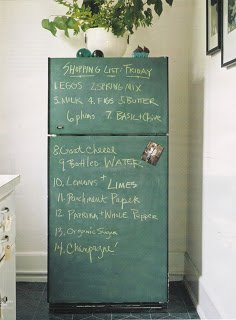 SHOPPING LIST: FRIDAY
1. EGGS 2. SPRING MIX
3. MILK 4. FIGS 5. BUTTER
6 plums 7. BASIL + Chive
8. Goat Cheese
9. Bottled WATER
10. LEMONS + LIMES
11. Parchment Paper
12. PAPRIKA + White Pepper
13. Organic Sugar
14. Champagne!